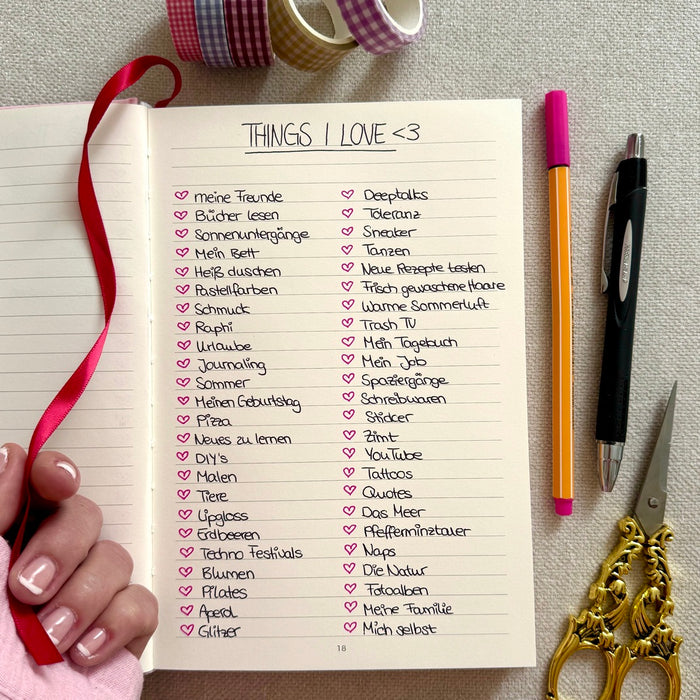 THINGS I LOVE <3
meine Freunde
Bücher lesen
Sonnenuntergänge
Mein Bett
Heiß duschen
Pastellfarben
Schmuck
Raphi
Urlaube
Journaling
Sommer
Meinen Geburtstag
Pizza
Neues zu lernen
DIY's
Malen
Tiere
Lipgloss
Erdbeeren
Techno Festivals
Blumen
Pilates
Aperol
Glitzer
Deeptalks
Toleranz
Sneaker
Tanzen
Neue Rezepte testen
Frisch gewaschene Haare
Warme Sommerluft
Trash TV
Mein Tagebuch
Mein Job
Spaziergänge
Schreibwaren
Sticker
Zimt
YouTube
Tattoos
Quotes
Das Meer
Pfefferminztaler
Naps
Die Natur
Fotoalben
Meine Familie
Mich selbst
18